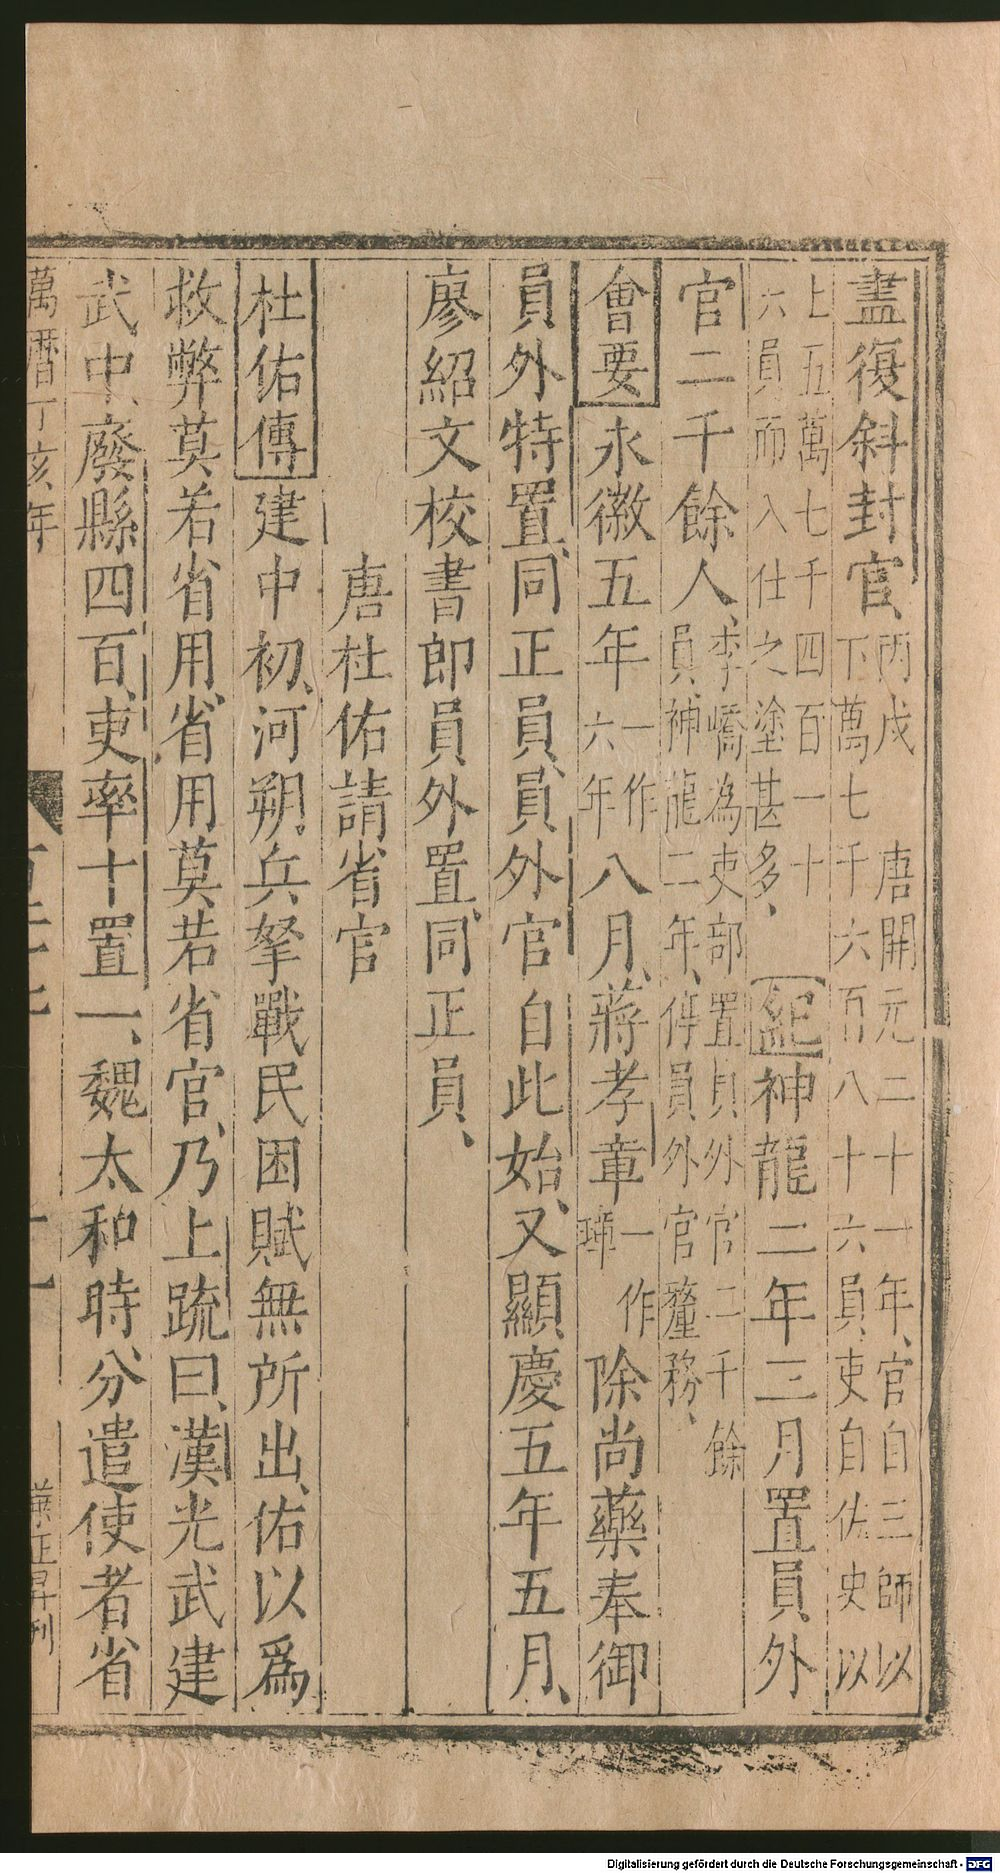 盡復斜封官、丙戌　唐開元二十一年、官自三師以
下萬七千六百八十六員、吏自佐史以
上五萬七千四百一十
六員而入仕之塗甚多、紀神龍二年三月置員外
官二千餘人、李嶠為吏部置員外官二千餘
員神龍二年、停員外官釐務、
會要永徽五年一作六年八月、蔣孝章一作璋除尚藥奉御
員外特置、同正員、員外官自此始、又顯慶五年五月、
廖紹文校書郎員外置、同正員、
唐杜佑請省官
杜佑傳建中初、河朔兵拏戰民困賦無所出、佑以爲
救弊莫若省用、省用莫若省官、乃上疏曰、漢光武建
武中、廢縣四百、吏率十置一、魏太和時、分遣使者省
萬曆丁亥年
葉正昇刊
Digitalisierung gefördert durch die Deutsche Forschungsgemeinschaft - DFG